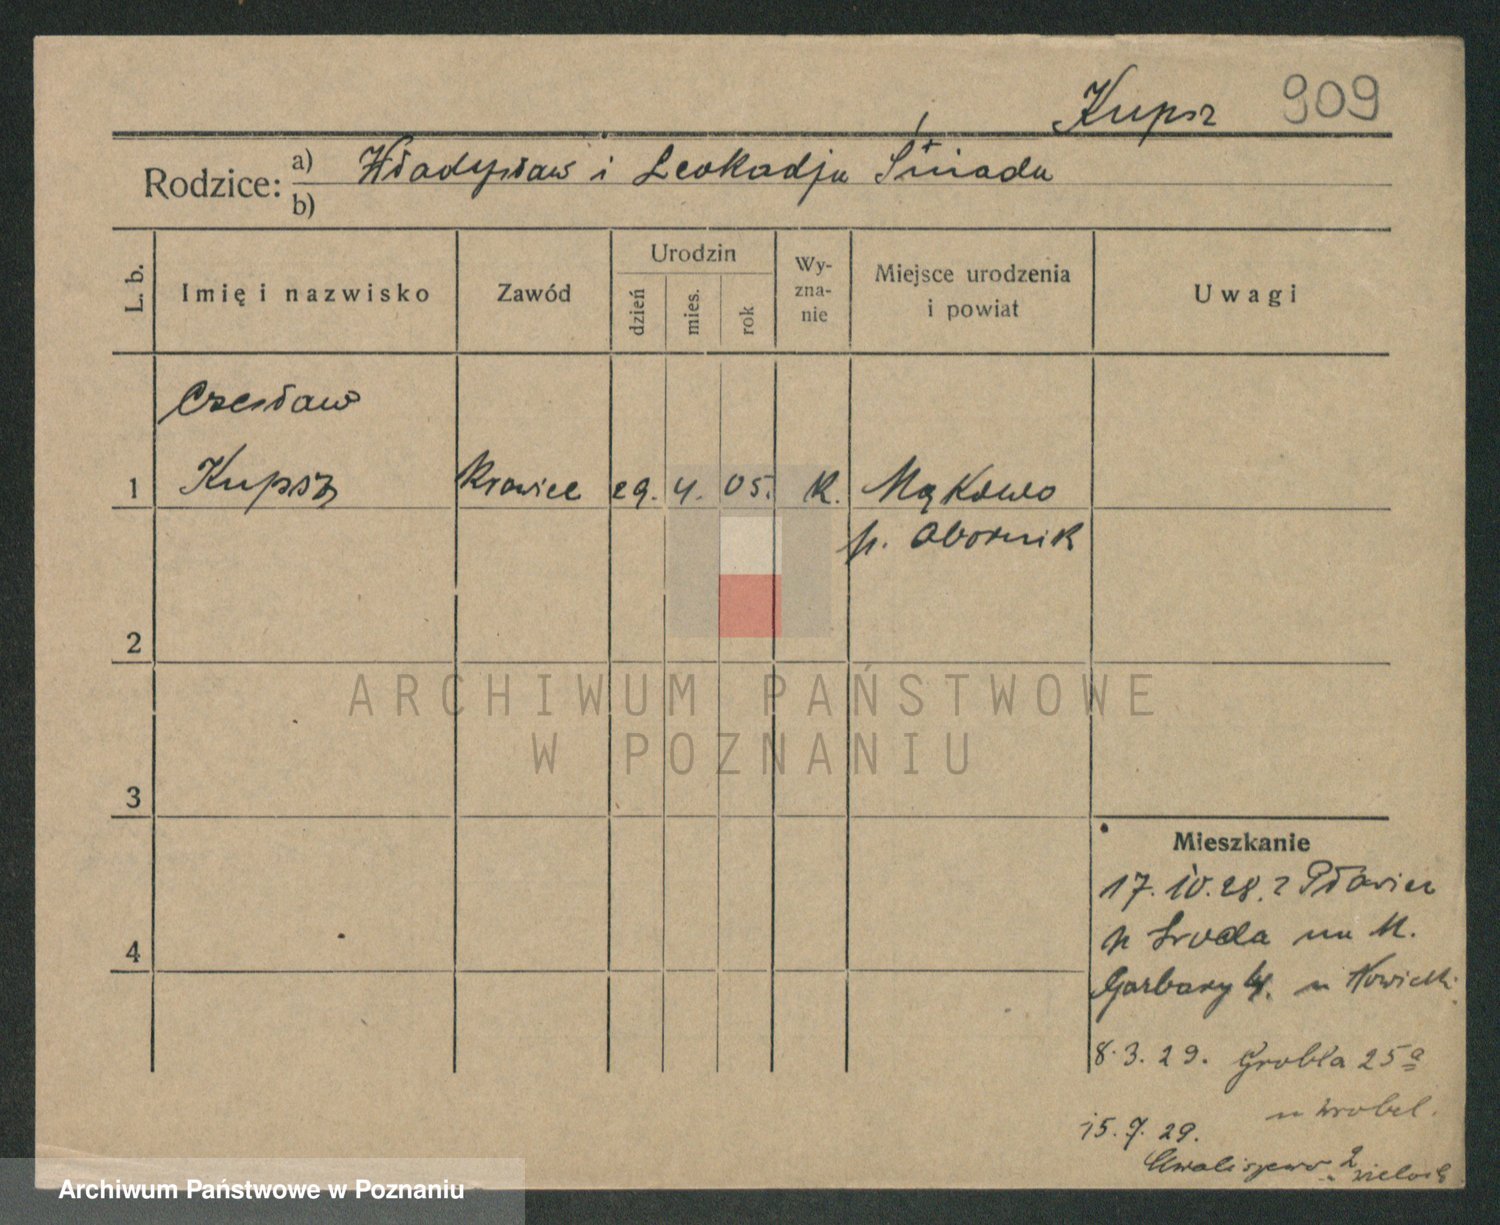 Kupsz 909
Rodzice: a) Władysław i Leokadja Śniada
b)
L. b. Imię i nazwisko Zawód Urodzin dzień mies. rok Wy-zna-nie Miejsce urodzenia i powiat Uwagi
Czesław
1 Kupsz Krawiec 29. 4. 05. K. Mąkowo
p. Obornik
2
ARCHIWUM PAŃSTWOWE
W POZNANIU
3
Mieszkanie
17. IV. 28. z Pławiec
p Sroda na M.
4
Garbary u Nowicki
8. 3. 29. Grobla 25a
u Wrobel.
15. 7. 29.
Chwaliszewo
Archiwum Państwowe w Poznaniu